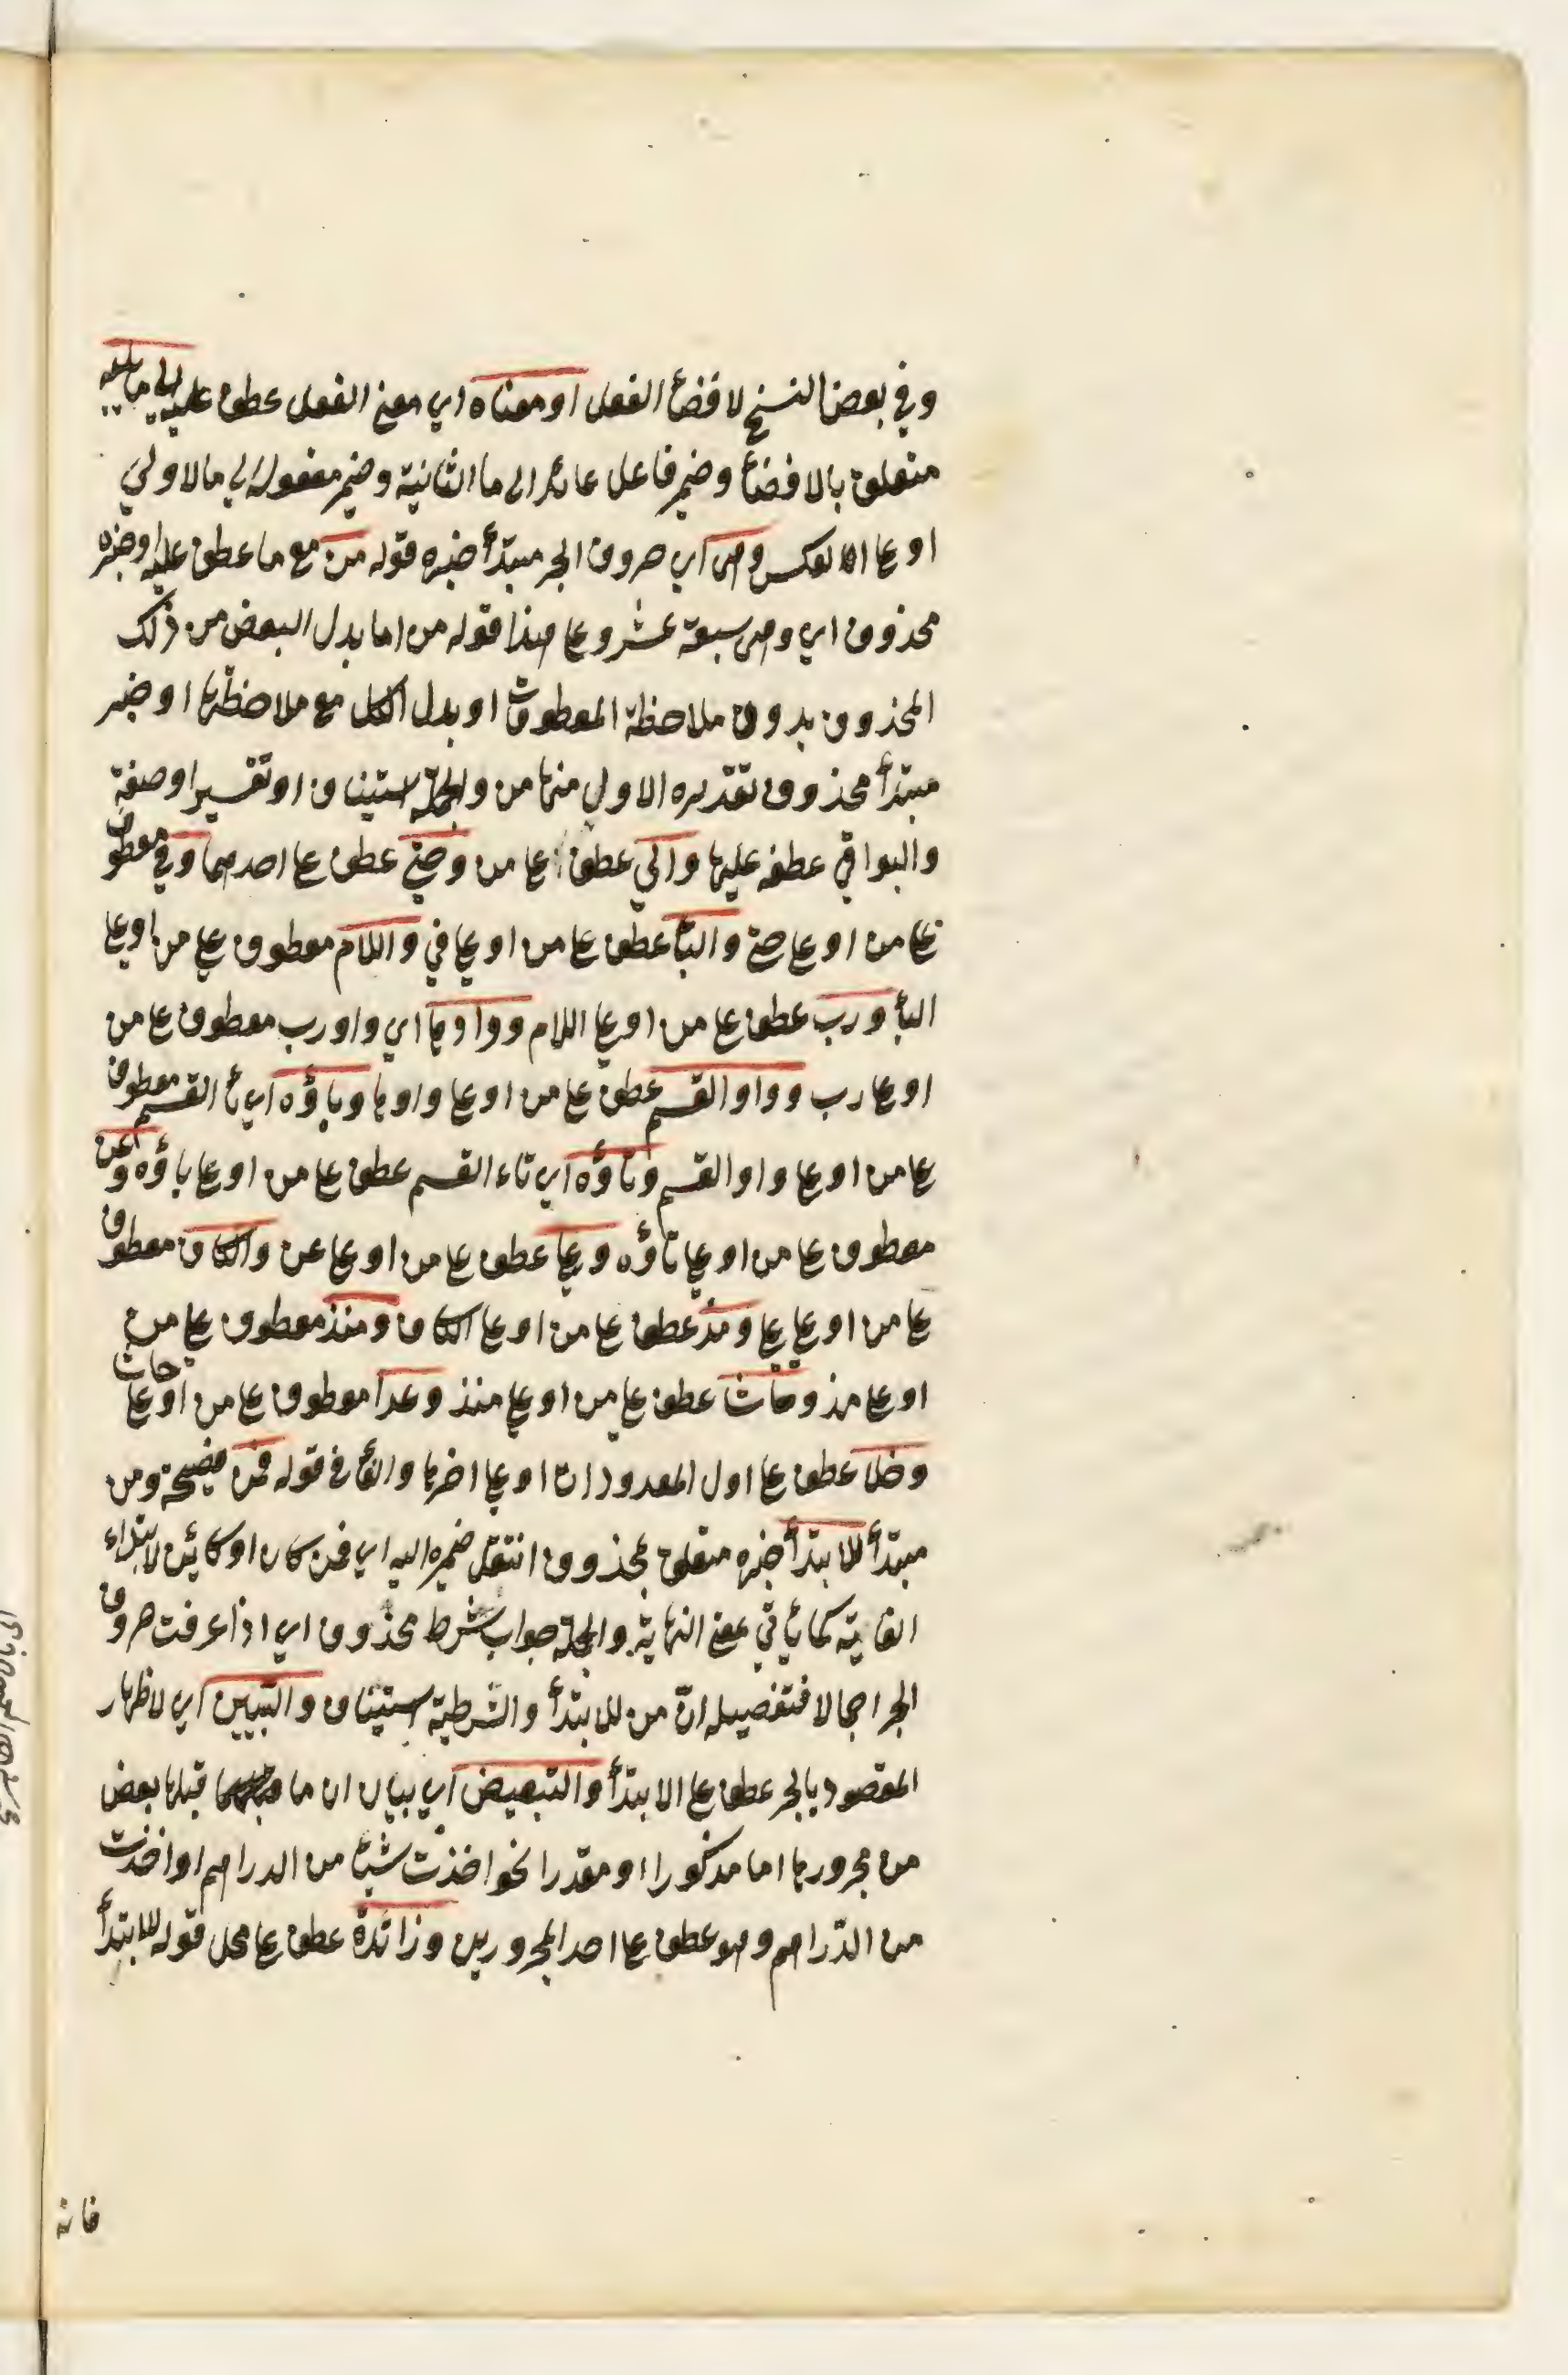 وفي بعض النسخ لافضأ الفعل او معناه اي معنى الفعل عطف عليه الى ما يليه
متعلق بالافضأ وضمير فاعل عائد الى ما الثانية وضمير مفعوله الى ما الاولى
او على العكس وهي اي حروف الجر مبتدأ خبره قوله من مع ما عطف عليه او خبره
محذوف اي وهي سبعة عشر وعلى هذا قوله من اما بدل البعض من ذلك
المحذوف بدون ملاحظة المعطوفات او بدل الكل مع ملاحظتها او خبر
مبتدأ محذوف تقديره الاول منها من والجملة استيناف او تفسير او صفة
والبواقي عطف عليها والى عطف على من وحتى عطف على احدهما وفي معطوف
على من او على حتى والبأ عطف على من او على في واللام معطوف على من او على
البأ ورب عطف على من او على اللام وواوها اي واو رب معطوف على من
او على رب وواو القسم عطف على من او على واوها وباؤه اي بأ القسم معطوف
على من او على واو القسم وتاؤه اي تاء القسم عطف على من او على باؤه وعن
معطوف على من او على تاؤه وعلى عطف على من او على عن والكاف معطوف
على من او على على ومذ عطف على من او على الكاف ومنذ معطوف على من
او على مذ وحاشا عطف على من او على منذ وعدا معطوف على من او على حاشا
وخلا عطف على اول المعدودات او على اخرها والفأ في قوله فمن فصيحة ومن
مبتدأ للابتدأ خبره متعلق بمحذوف انتقل ضميره اليه اي فمن كان او كائن لابتداء
الغاية كما يأتي بمعنى النهاية والجملة جواب شرط محذوف اي اذا عرفت حروف
الجر اجمالا فتفصيله ان من للابتدأ والشرطية استيناف والتبيين اي لاظهار
المقصود بالجر عطف على الابتدأ والتبعيض اي بيان ان ما قبلها بعض
من مجرورها اما مذكورا او مقدرا نحو اخذت شيئا من الدراهم او اخذت
من الدراهم وهو عطف على احد المجرورين وزائدة عطف على محل قوله للابتدأ
فانه